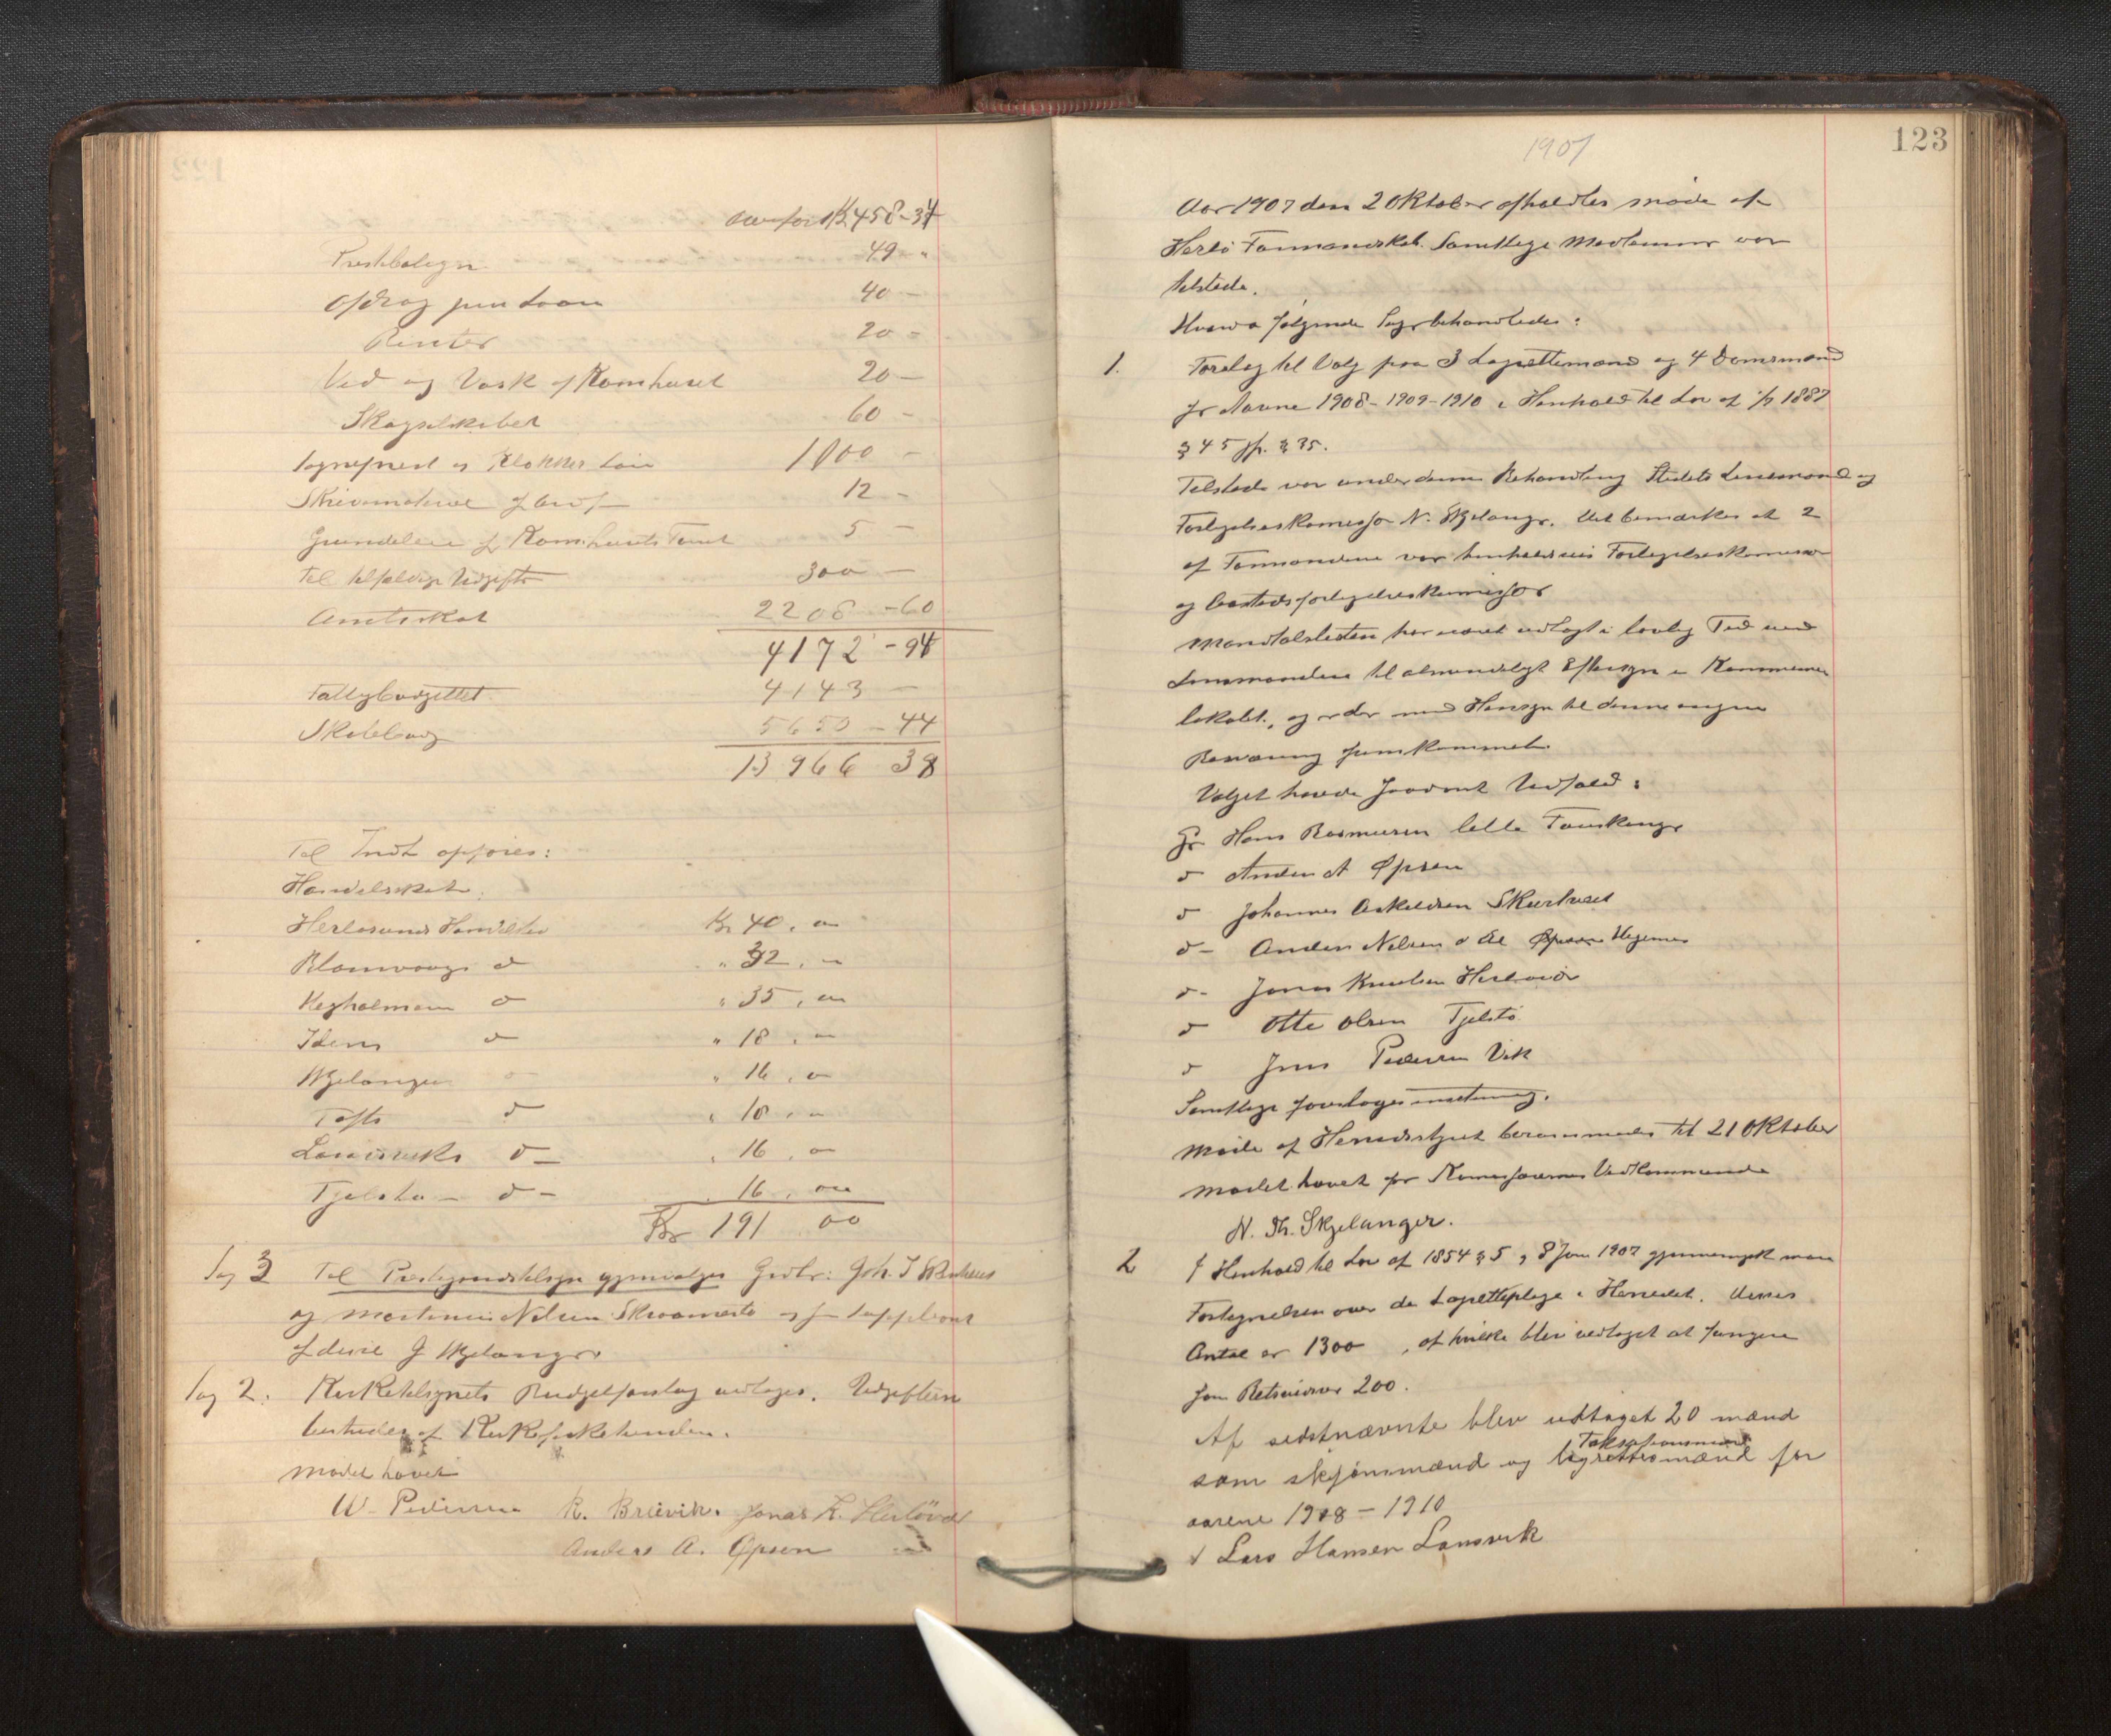 overført 458-34
Præsteboligen 49 "
Afdrag paa Laan 40 -
Renter 20 -
Ved og Vask af Komhuset 20 -
Skogselskabet 60 -
Sogneprest og Klokker Løn 100 -
Skrivemateriel 12 -
Grundleie af Komhusets Tomt 5 -
Til tilfældige Udgifter 300 -
Amtsskat 2208 -60
4172 -94
Fattigbudgettet 4143 -
Skolebudg 5650 -44
13966 38
Til Indt opføres:
Handelsskat:
Herløsund Handelsted Kr 40, "
Blomvaag d " 32, "
Kegholmen d " 35, "
Idens d " 18, "
Skjelanger " 16, "
Tofte d " 18, "
Landsviks d - 16, "
Tjelstø - d - 16, "
Kr 191 00
Sag 3 Til Præstegaardstilsyn gjenvalges Grdbr: Joh. J
og Martinus Nilsen og som Suppleant
Skjelanger
Sag 2: Kirketilsynets Budgetforslag vedtages. Udgiften
bestrides af
Mødet hævet
W. Pedersen R. Breivik. Jonas K. Herløvær
Anders A. Øpsen
123
1907
Aar 1907 den 2 Oktober afholdtes møde af
Herlø Formandskab. Samtlige Medlemmer var
tilstede.
Hvorda følgende Sager behandledes:
1. Forslag til Valg paa 3 Lagrettemænd og 4 Domsmænd
for Aarene 1908-1909-1910 i Henhold til Lov af 1/7 1887
§ 45 jfr. § 35.
Tilstede var under denne Behandling Stedets Lensmand og
Forligelseskomissær N. Skjelanger. Det bemærkes at 2
af Formændene var henholdsvis Forligelseskomissær
og bostedsforligelseskomissær
Mandtalslisten har været udlagt i lovlig Tid ved
Lensmanden til almindeligt Eftersyn i Kommune
lokalet, og er der med Hensyn til denne ingen
Bemærkning fremkommet.
Valget havde saadant Udfald:
Gr Hans Rasmussen lille Fauskanger
d Anders A Øpsen
d Johannes Askildsen Skurtveit
d - Anders Nilsen d Æl Hegernes
d - Jonas Knutsen Herløvær
d Otte Olsen Tjelstø
d Jens Pedersen Vik
Samtlige foretoges enstemmig.
Møde af Herredsstyret berammedes til 21 Oktober
Mødet hævet for Komissærernes Vedkommende
N. Th. Skjelanger.
2 I Henhold til Lov af 1854 § 5 og 8 Jan 1907 gjennemgik man
Fortegnelsen over de Lagrettepligtige i Herredet. Deres
Antal er 1300, af hvilke blev vedtaget at fungere
som Retsvidner 200.
Af sidstnævnte blev udtaget 20 mænd
som skjønsmænd og Taksationsmænd for
aarene 1908 - 1910
√ Lars Hansen Lansvik